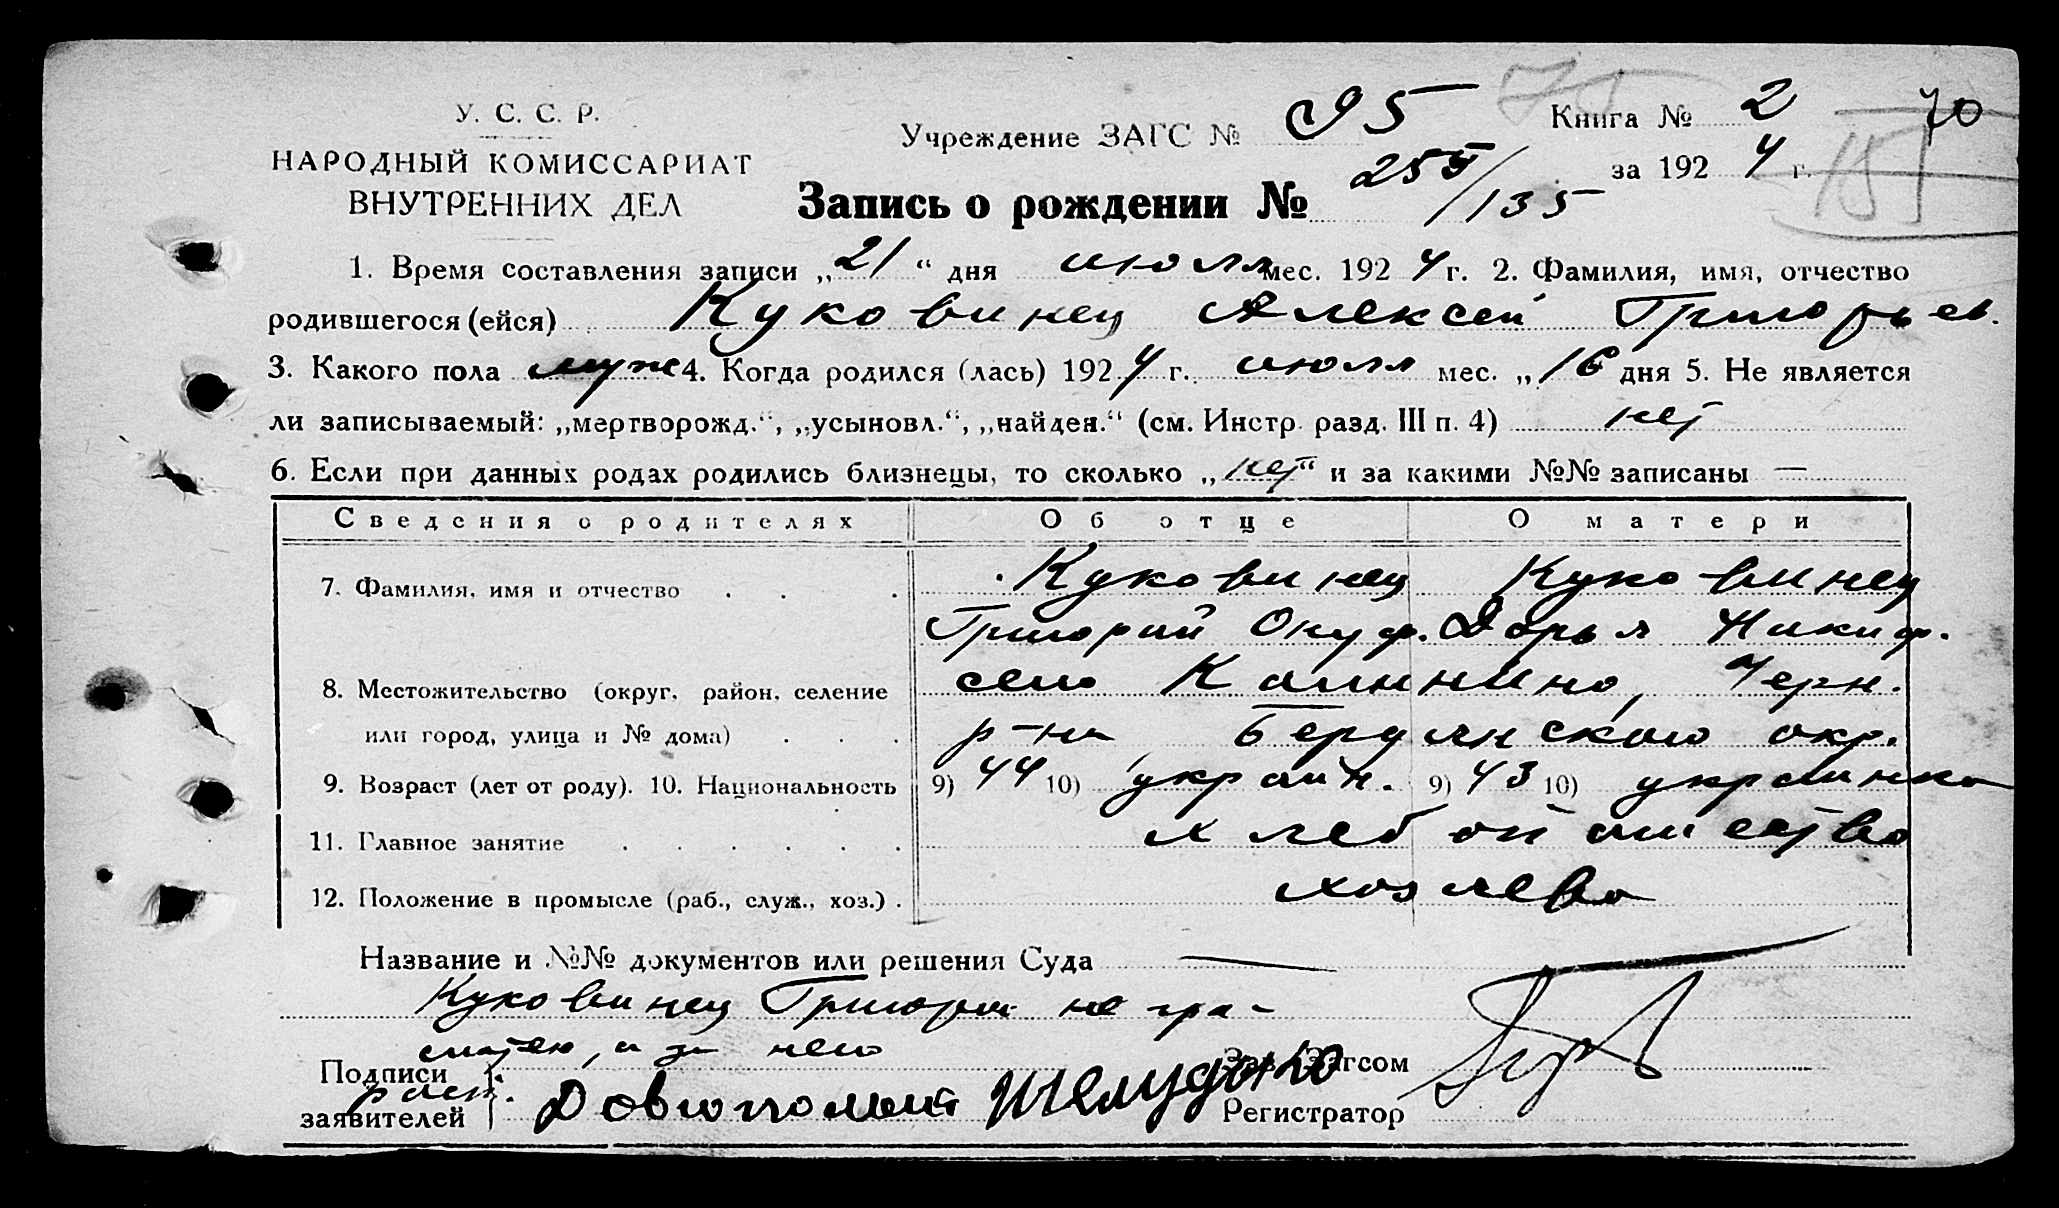 У. С. С. Р.
НАРОДНЫЙ КОМИССАРИАТ
ВНУТРЕННИХ ДЕЛ
Учреждение ЗАГС № 95
Книга № 2
70
за 192 4 г.
Запись о рождении № 255/135
1. Время составления записи „ 21 “ дня июля мес. 192 4 г. 2. Фамилия, имя, отчество
родившегося (ейся) Куковинец Алексей Григорьев.
3. Какого пола муж 4. Когда родился (лась) 192 4 г. июля мес. „ 16 дня 5. Не является
ли записываемый: „мертворожд.“, „усыновл.“, „найден.“ (см. Инстр. разд. III п. 4) нет
6. Если при данных родах родились близнецы, то сколько „ нет “ и за какими №№ записаны —
Сведения о родителях Об отце О матери
7. Фамилия, имя и отчество . . . Куковинец Куковинец
Григорий Онуф. Дарья Никиф.
8. Местожительство (округ, район, селение село Калиннино, Черн.
или город, улица и № дома) . . . р-на Бердянского окр.
9. Возраст (лет от роду). 10. Национальность 9) 44 10) украин. 9) 43 10) украинка
11. Главное занятие . . . . . . хлебопашество
12. Положение в промысле (раб., служ., хоз.) . хозяева
Название и №№ документов или решения Суда —
Куковинец Григорий не гра-
мотен, а за него
Подписи
расп.
заявителей
Шелудько
Зав. Загсом
Регистратор